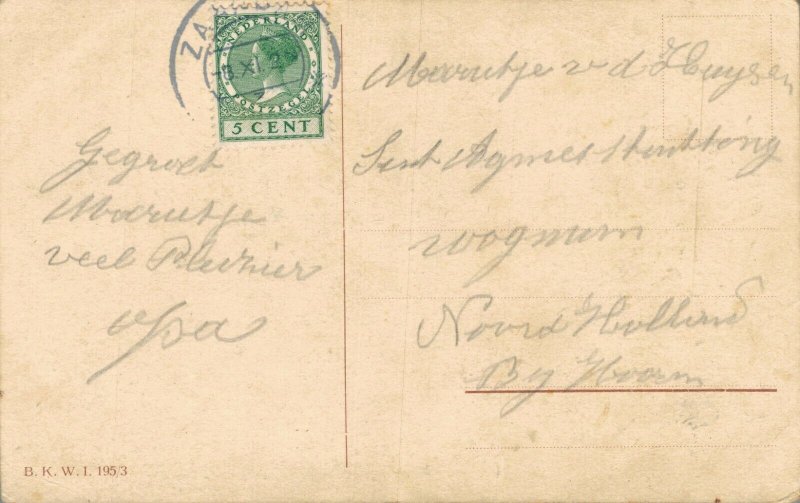 ZA
NEDERLAND
-8 XI 2
POSTZEGEL
5 CENT
Gegroet
Maarutje
veel Plezier
opa
Maarutje v d Huysen
Sint Agnes Stichting
wognum
Noord Holland
By Hoorn
B. K. W. I. 195/3